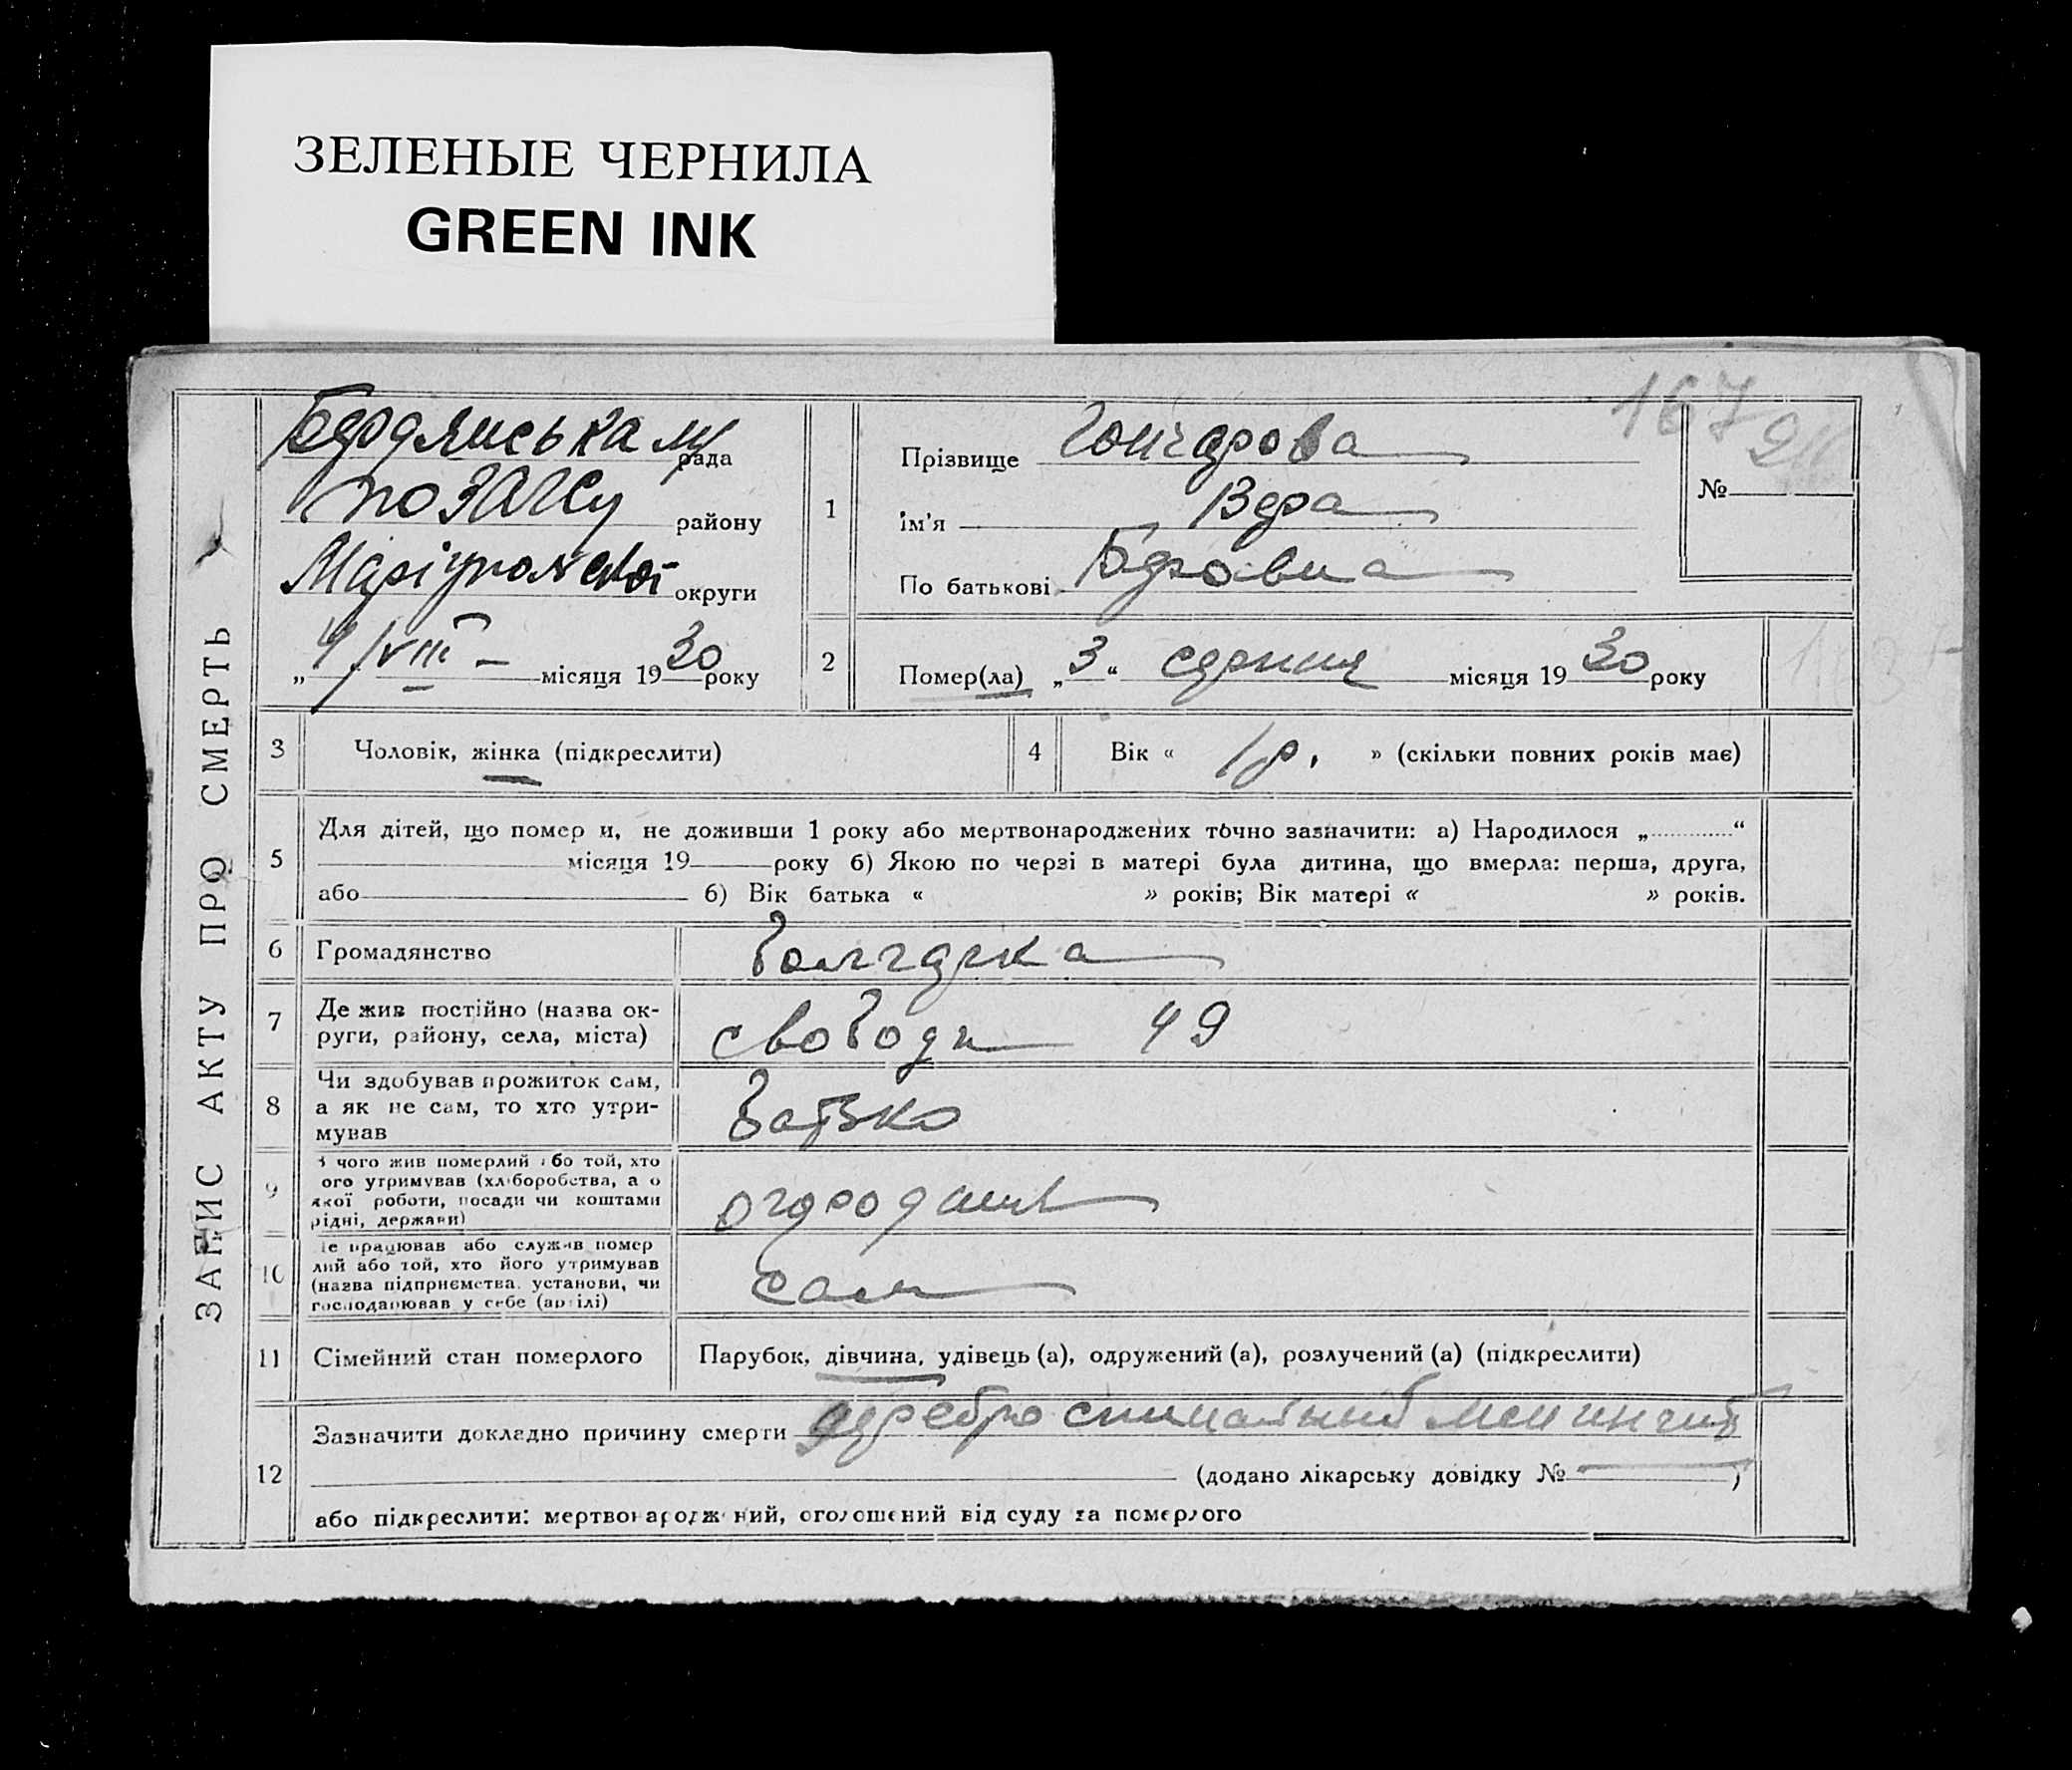 ЗЕЛЕНЫЕ ЧЕРНИЛА
GREEN INK
167
ЗАПИС АКТУ ПРО СМЕРТЬ
Бердянська
рада
по ЗАГСу району
Маріупольської округи
„ 4/VIII — місяця 1930 року
1
Прізвище Гончарова
Ім'я Вера
По батькові
№
2
Помер(ла) „3“ серпня місяця 1930 року
3
Чоловік, жінка (підкреслити)
4
Вік « 18. » (скільки повних років має)
5
Для дітей, що помер и, не доживши 1 року або мертвонароджених точно зазначити: а) Народилося „ “
місяця 19 року б) Якою по черзі в матері була дитина, що вмерла: перша, друга,
або б) Вік батька « » років; Вік матері « » років.
6
Громадянство
Болгарка
7
Де жив постійно (назва ок-
руги, району, села, міста)
Свободи 49
8
Чи здобував прожиток сам,
а як не сам, то хто утри-
мував
Батько
9
З чого жив померлий або той, хто
ого утримував (хліборобства, а о
якої роботи, посади чи коштами
рідні, держави)
огородник
10
Де працював або служив помер
лий або той, хто його утримував
(назва підприємства, установи, чи
господарював у себе (артілі)
сам
11
Сімейний стан померлого
Парубок, дівчина, удівець (а), одружений (а), розлучений (а) (підкреслити)
12
Зазначити докладно причину смерти цереброспинальный менингит
(додано лікарську довідку № )
або підкреслити: мертвонароджений, оголошений від суду за померлого